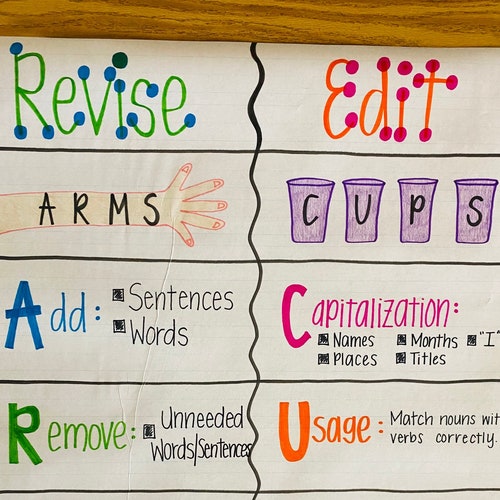 Revise
ARMS
Add:
Sentences
Words
Remove:
Unneeded
Words/Sentences
Edit
CUPS
Capitalization:
Names
Months
"I"
Places
Titles
Usage:
Match nouns
verbs correctly.